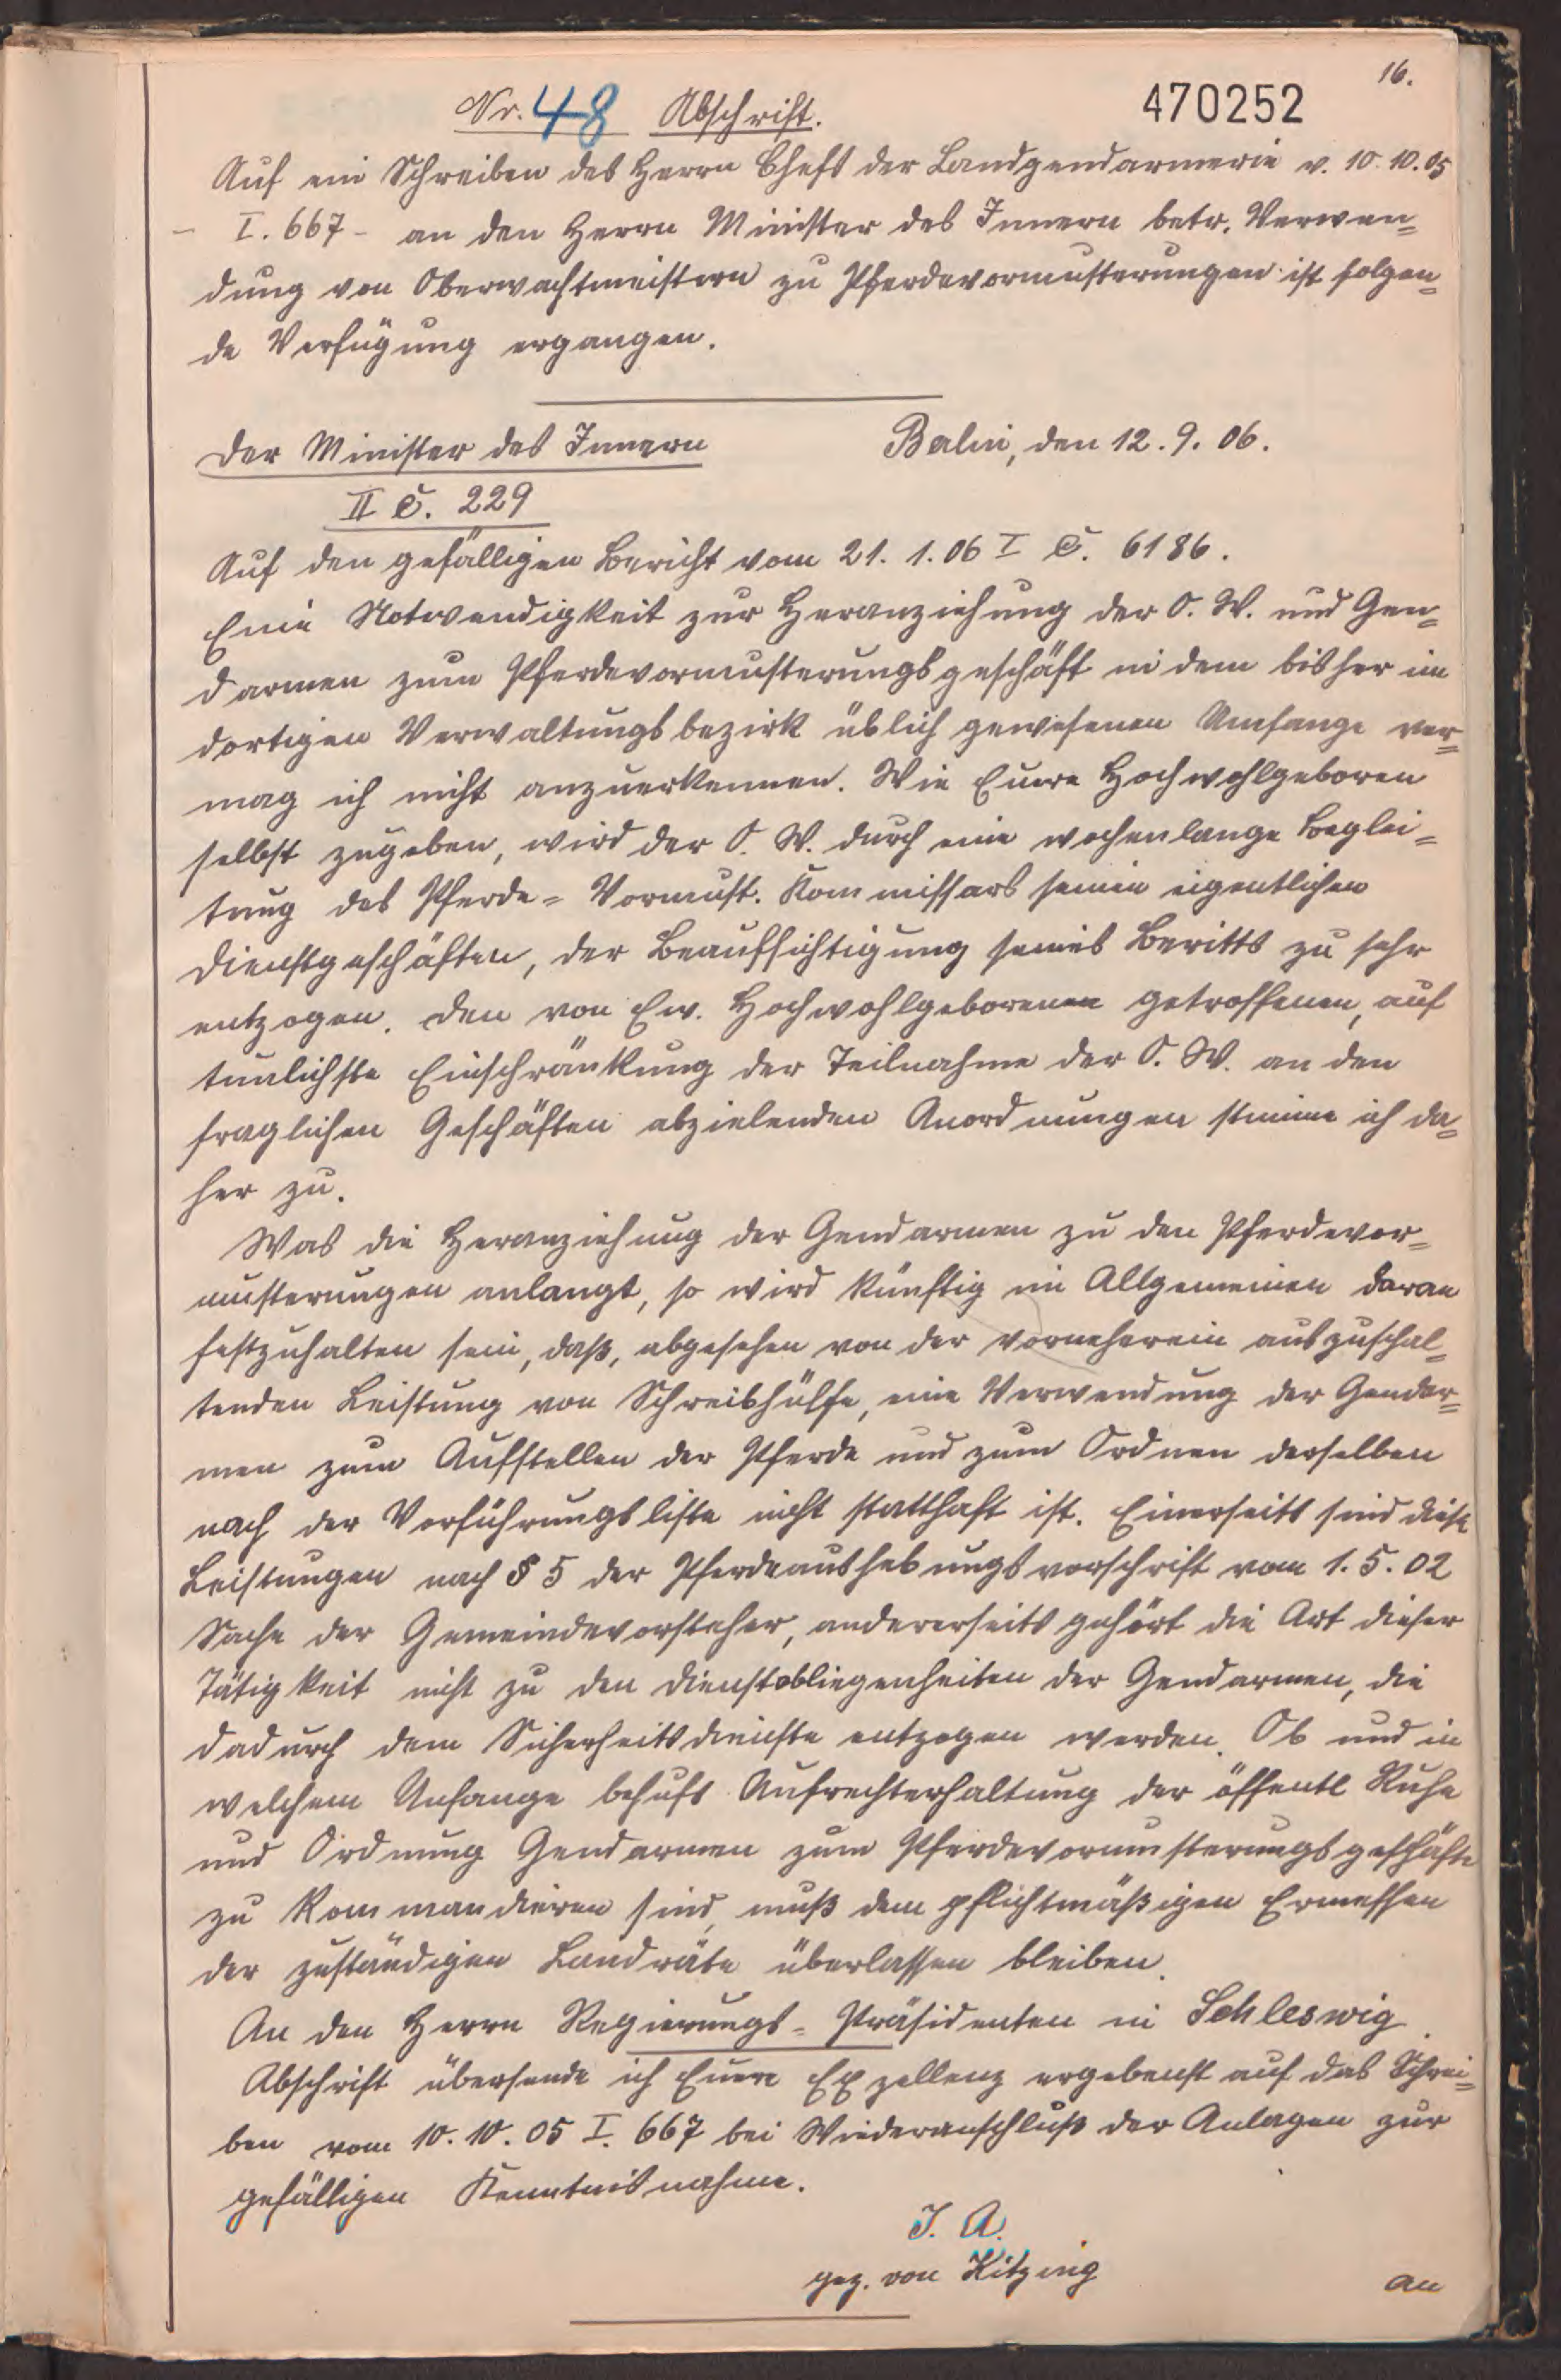 16.
470252
Nr. 48 Abschrift.
Auf ein Schreiben des Herrn Chefs der Landgendarmerie v. 10.10.05
- I. 667 - an den Herrn Minister des Innern betr. Verwen=
dung von Oberwachtmeistern zu Pferdevormusterungen ist folgen=
de Verfügung ergangen.
Der Minister des Innern
Berlin, den 12.9.06.
II C. 229
Auf den gefälligen Bericht vom 21.1.06 I C. 6186.
Eine Notwendigkeit zur Heranziehung der O. W. und Gen=
darmen zum Pferdevormusterungsgeschäft in dem bisher im
dortigen Verwaltungsbezirk üblich gewesenen Umfange ver=
mag ich nicht anzuerkennen. Wie Euere Hochwohlgeboren
selbst zugeben, wird der O. W. durch eine wochenlange Beglei=
tung des Pferde=Vormust. Kommissars seinen eigentlichen
Dienstgeschäften, der Beaufsichtigung seines Beritts zu sehr
entzogen. Den von Ew. Hochwohlgeborenen getroffenen, auf
tunlichste Einschränkung der Teilnahme der O. W. an den
fraglichen Geschäften abzielenden Anordnungen stimme ich da=
her zu.
Was die Heranziehung der Gendarmen zu den Pferdevor=
musterungen anlangt, so wird künftig im Allgemeinen daran
festzuhalten sein, daß, abgesehen von der vorneherein auszuschal=
tenden Leistung von Schreibhülfe, eine Verwendung der Gendar=
men zum Aufstellen der Pferde und zum Ordnen derselben
nach der Vorführungsliste nicht statthaft ist. Einerseits sind diese
Leistungen nach § 5 der Pferdeaushebungsvorschrift vom 1.5.02
Sache der Gemeindevorsteher, andererseits gehört die Art dieser
Tätigkeit nicht zu den Dienstobliegenheiten der Gendarmen, die
dadurch dem Sicherheitsdienste entzogen werden. Ob und in
welchem Umfange behufs Aufrechterhaltung der öffentl Ruhe
und Ordnung Gendarmen zum Pferdevormusterungsgeschäfte
zu kommandieren sind, muß dem pflichtmäßigen Ermessen
der zuständigen Landräte überlassen bleiben.
An den Herrn Regierungs=Präsidenten in Schleswig.
Abschrift übersende ich Euere Exzellenz ergebenst auf das Schrei=
ben vom 10.10.05 I. 667 bei Wiederanschluß der Anlagen zur
gefälligen Kenntnisnahme.
J. A.
gez. von Kitzing
An